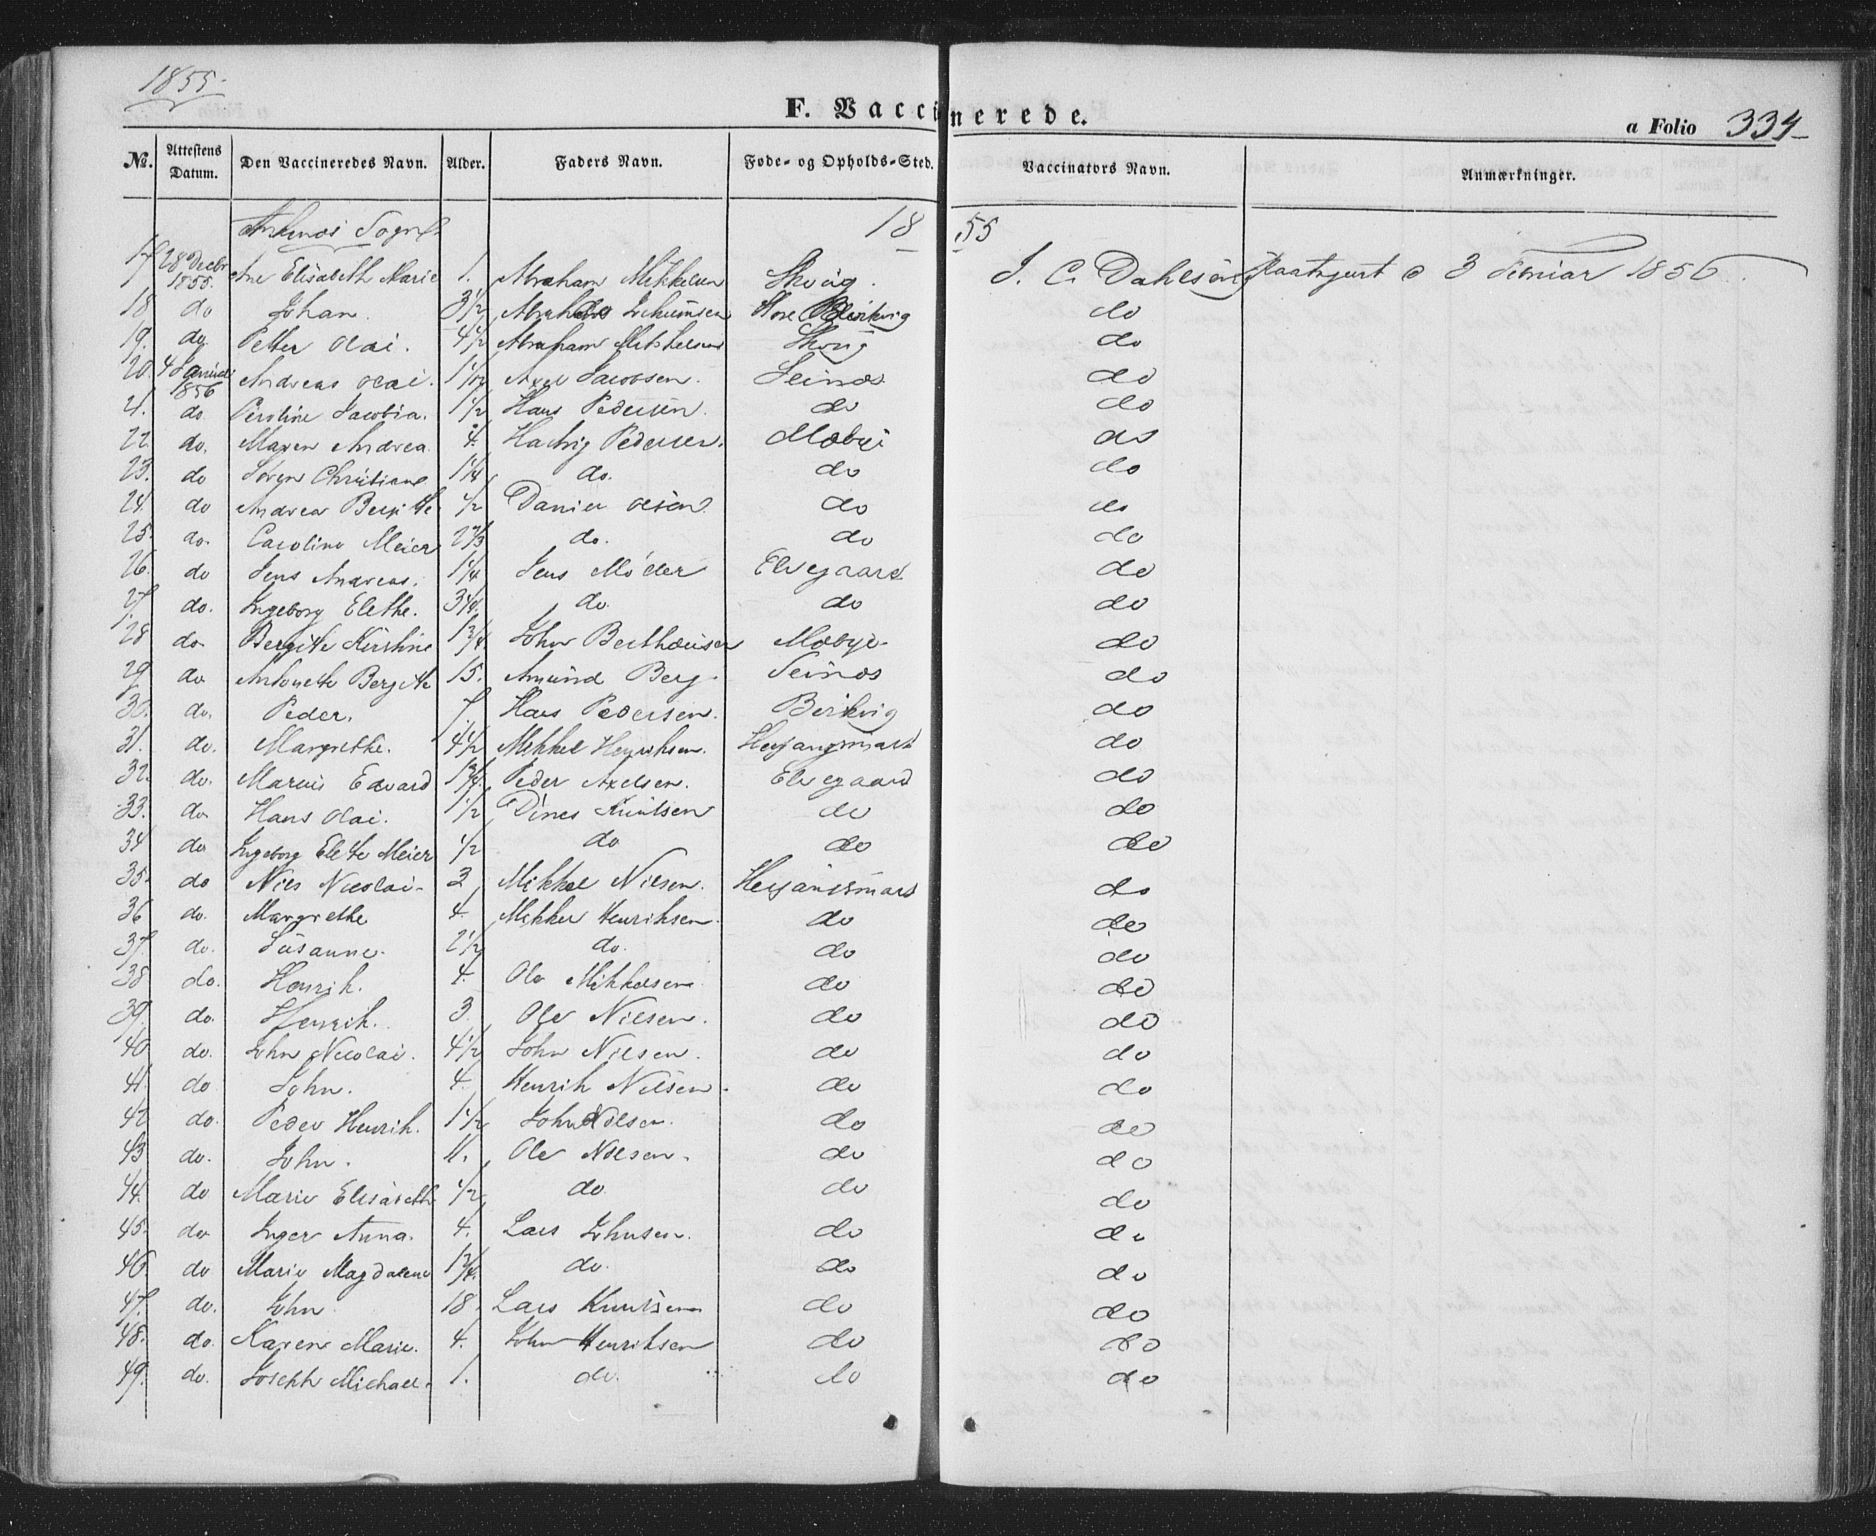 1855.
F. Vaccinerede.
a Folio 334
No. Attestens Datum. Den Vaccineredes Navn. Alder. Faders Navn. Føde- og Opholds-Sted. Vaccinators Navn. Anmærkninger.
Ankenæs Sogn 18 55
17 28 Decbr 1855. Ane Elisabeth Marie 1. Abraham Mikkelsen J. C. Dahlsen 3 Februar 1856
18 do Johan. 3 1/2 do
19. do Petter Olai. 4 1/2 Abraham do
20. 4 Januar 1856 Andreas Olai. Axel Jacobsen. Seinæs do
21. do Peroline Jacobia. 1 1/2 Hans Pedersen. do do
22 do. Maren Andrea 4. Hartvig Pedersen. Mæbye do
23. do Søren Christian 1 1/4 do. do do
24. do Andrea Bergithe 1/2 Daniel Olsen do do
25. do. Caroline Meier 2 1/3 do. do do
26. do Jens Andreas. 1 1/4 Jens Møller Elvegaard do
27 do. Ingeborg Elethe. do. do do
28 do Bergite Kirstine 1 3/4 John Berthæusen Mæbye do
29 do Antonette Bergite 15. Amund Berg Seinæs do
30. do. Peder. 7 Hans Pedersen. Berkvig do
31. do. Margrethe. 4 1/2 Mikkel Henriksen. Herjangsmark do
32. do. Marius Edvard 1 3/4 Peder Axelsen. Elvegaard do
33. do Hans Olai. 1 1/2 Dines Knutsen do do
34 do Ingeborg Elete Meier 1/2 do do do
35. do Nils Nicolai 2 Mikkel Nilsen. Herjangsmark do
36 do. Margrethe 4. Mikkel Henriksen. do do
37. do. Susanne. 2 1/2 do. do do
38 do. Henrik. 4. Ole Mikkelsen do do
39. do. Henrik. 3. Ole Nilsen. do do
40 do. John Nicolai. 4 1/2 John Nilsen. do do
41. do John. 4. Henrik Nilsen. do do
42 do. Peder Henrik. 1 1/2 John Nilsen. do do
43 do. John. 11. Ole Nilsen. do do
44. do Marie Elisabeth 1/2 do do do
45. do Inger Anna. 4. Lars Johnsen. do do
46. do Marie Magdalene 1 3/4. do. do do
47. do. John 18. Lars Knutsen do do
48. do. Karen Marie. 4. John Henriksen do do
49. do. Joseph Michael. 1. do. do do